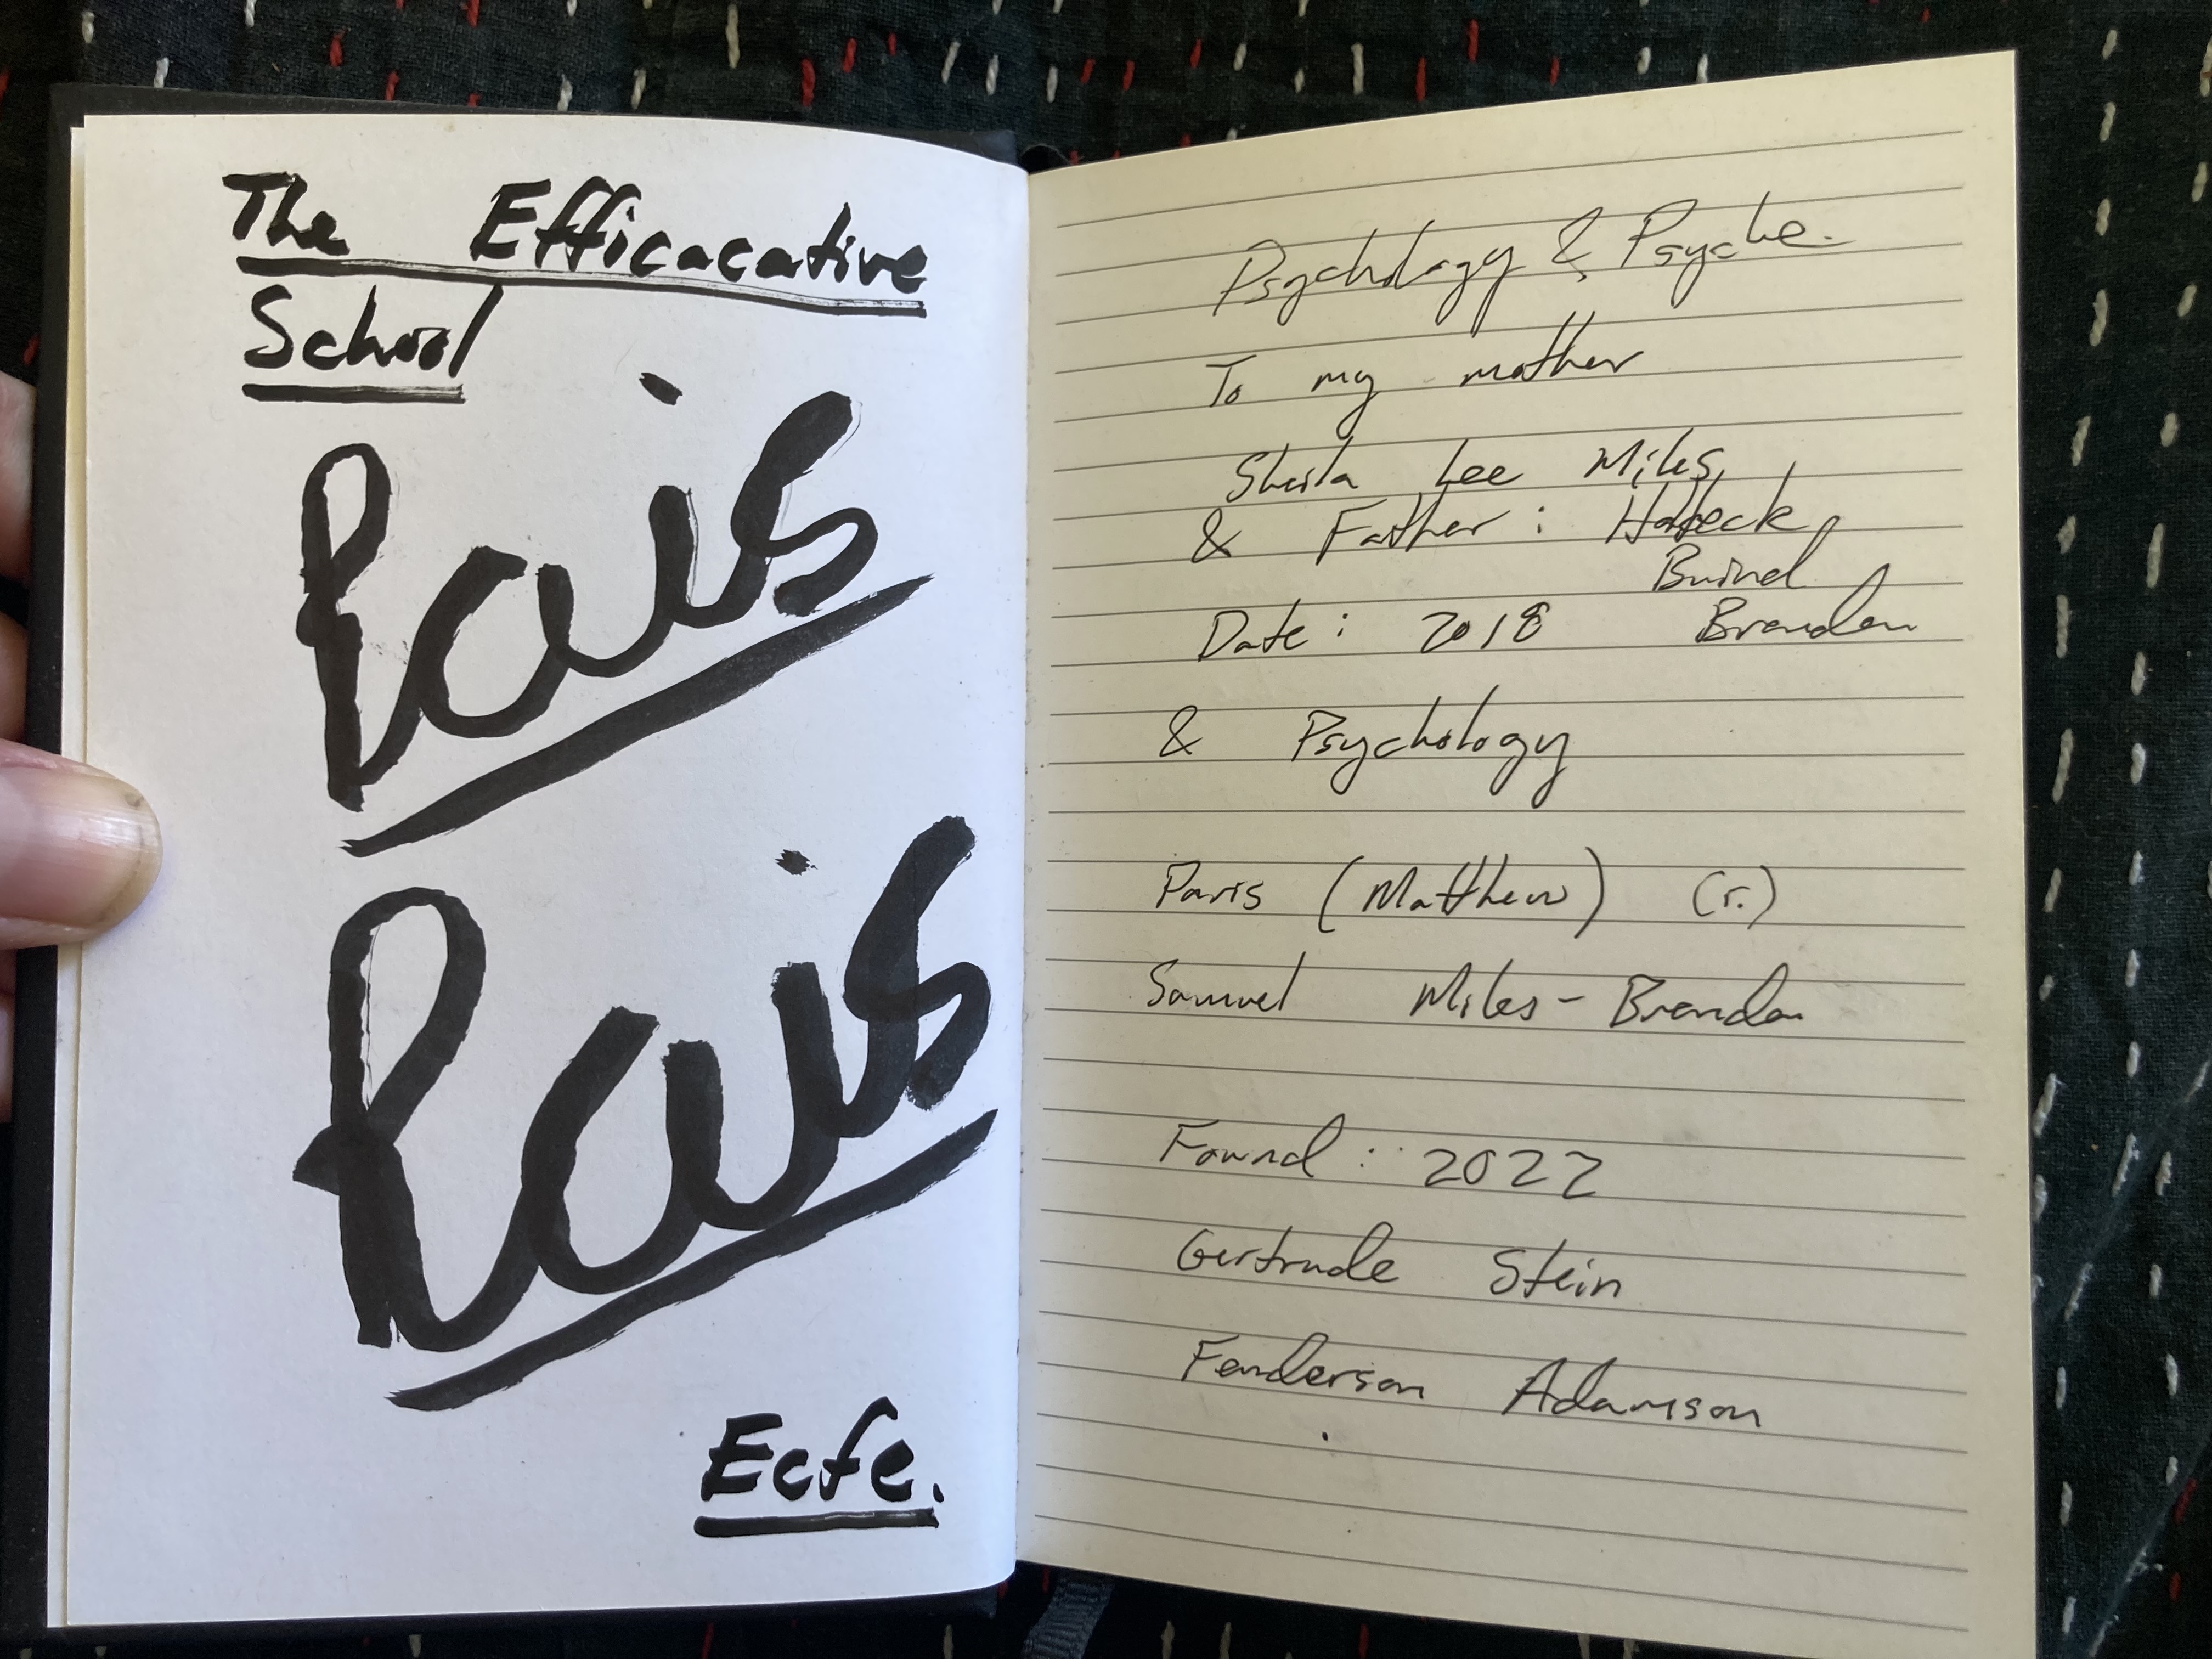 The Efficacative
School
Paris
Paris
Ecfe.
Psychology & Psyche.
To my mother
Sheila Lee Miles,
& Father: Halbeck
Buind
Date: 2018 Brandon
& Psychology
Paris (Matthew) (r.)
Samuel Miles-Brandon
Found: 2022
Gertrude Stein
Fenderson Adamson